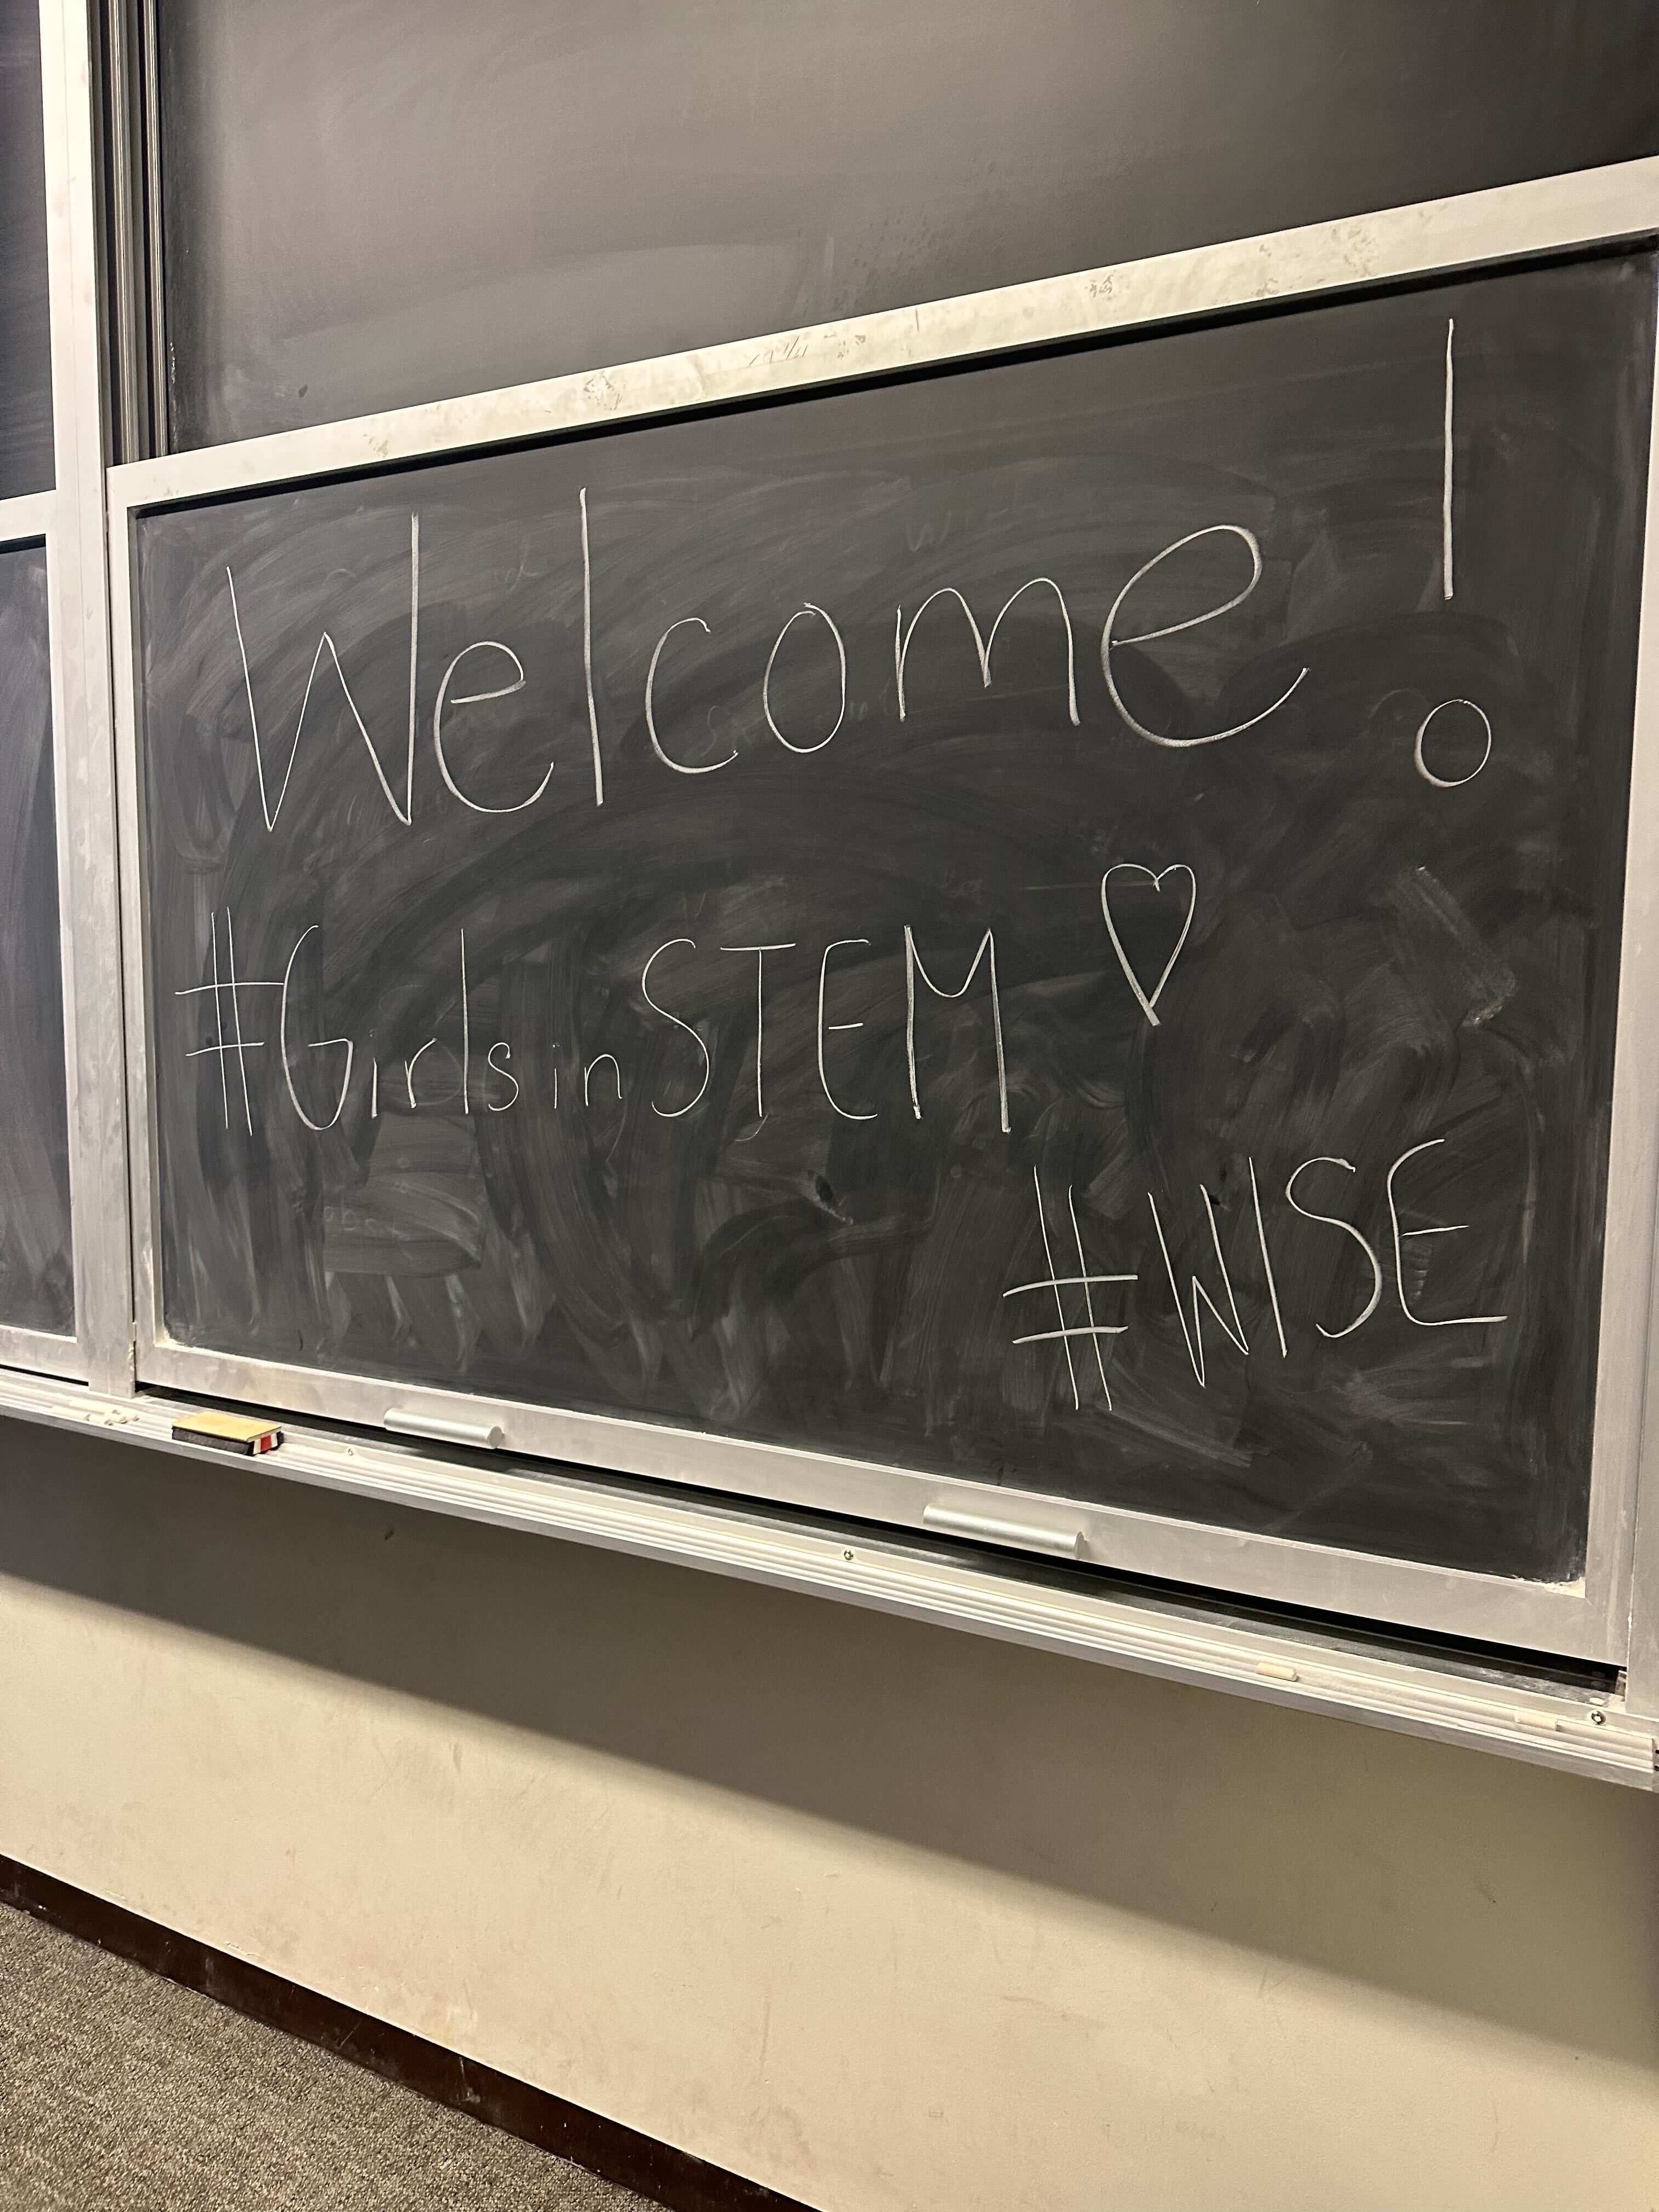 Welcome!
#GirlsinSTEM ♡
#WISE